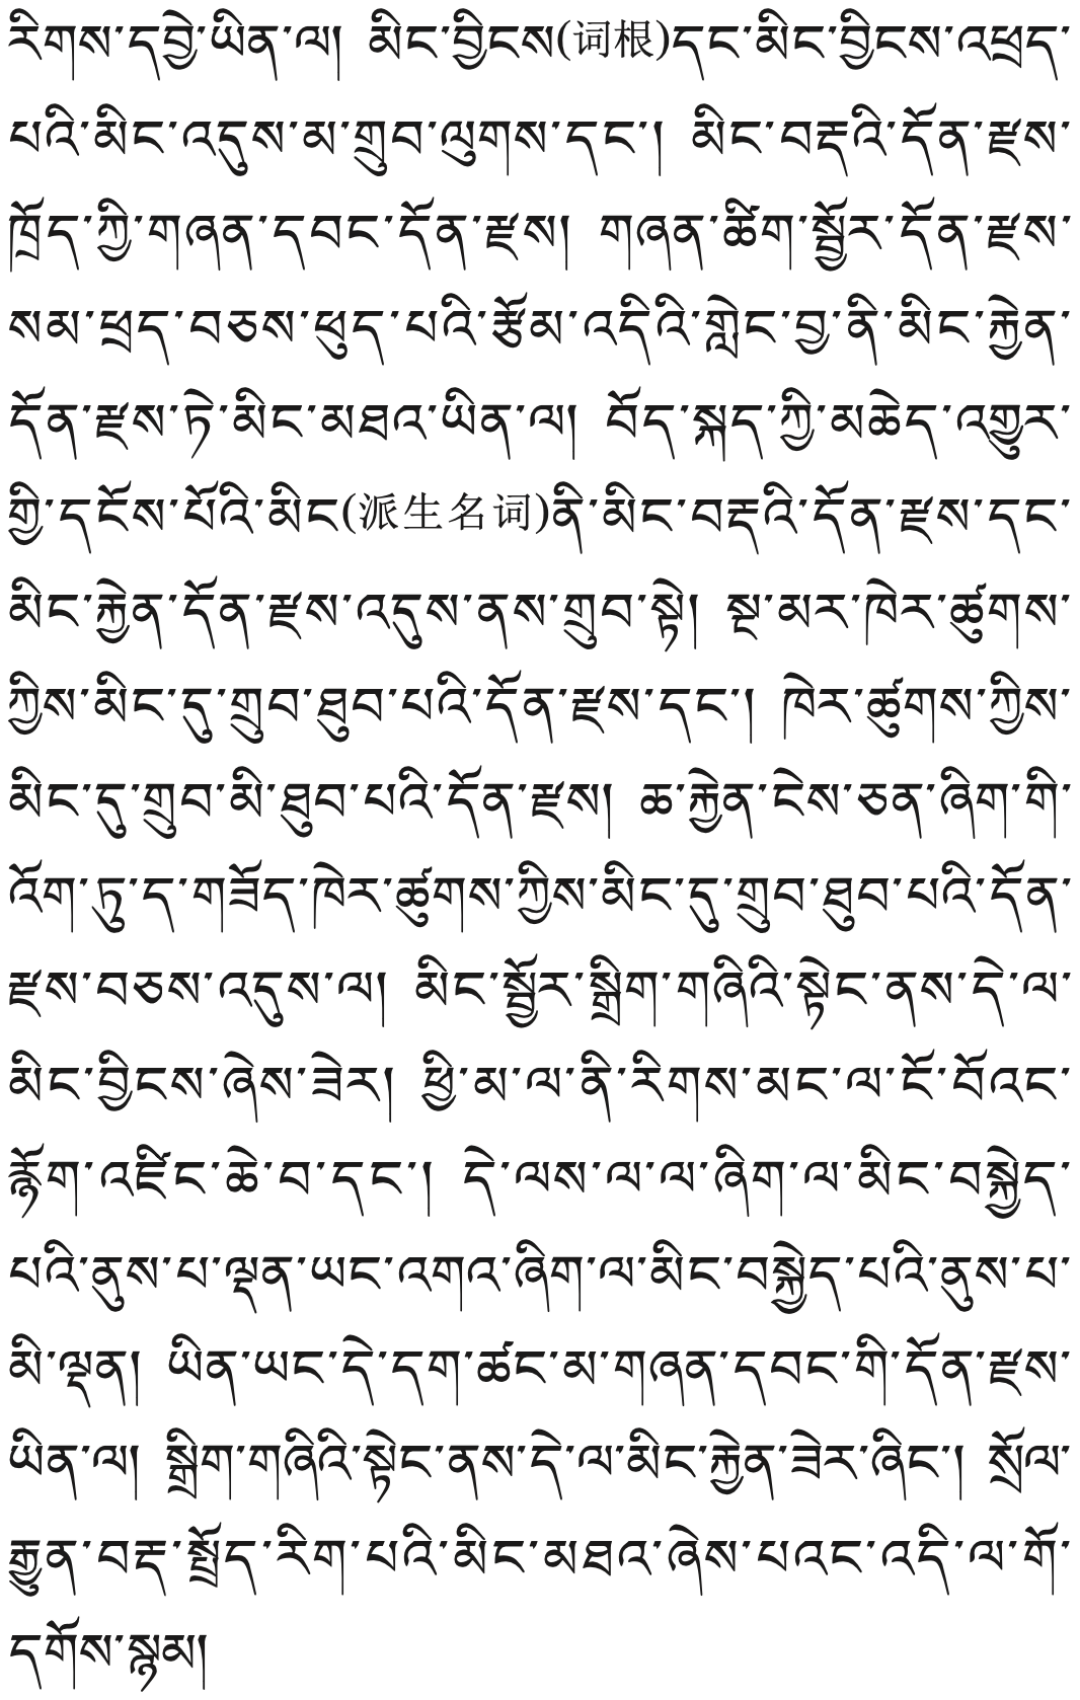 རིགས་དབྱེ་ཡིན་ལ། མིང་བྱིངས(词根)དང་མིང་བྱིངས་འཕྲད་
པའི་མིང་འདུས་མ་གྲུབ་ལུགས་དང་། མིང་བརྡའི་དོན་རྫས་
ཁྲོད་ཀྱི་གཞན་དབང་དོན་རྫས། གཞན་ཚིག་སྦྱོར་དོན་རྫས་
སམ་ཕྲད་བཅས་ཕུད་པའི་རྩོམ་འདིའི་གླེང་བྱ་ནི་མིང་རྐྱེན་
དོན་རྫས་ཏེ་མིང་མཐའ་ཡིན་ལ། བོད་སྐད་ཀྱི་མཆེད་འགྱུར་
གྱི་དངོས་པོའི་མིང(派生名词)ནི་མིང་བརྡའི་དོན་རྫས་དང་
མིང་རྐྱེན་དོན་རྫས་འདུས་ནས་གྲུབ་སྟེ། སྔ་མར་ཁེར་ཚུགས་
ཀྱིས་མིང་དུ་གྲུབ་ཐུབ་པའི་དོན་རྫས་དང་། ཁེར་ཚུགས་ཀྱིས་
མིང་དུ་གྲུབ་མི་ཐུབ་པའི་དོན་རྫས། ཆ་རྐྱེན་ངེས་ཅན་ཞིག་གི་
འོག་ཏུ་ད་གཟོད་ཁེར་ཚུགས་ཀྱིས་མིང་དུ་གྲུབ་ཐུབ་པའི་དོན་
རྫས་བཅས་འདུས་ལ། མིང་སྦྱོར་སྒྲིག་གཞིའི་སྟེང་ནས་དེ་ལ་
མིང་བྱིངས་ཞེས་ཟེར། ཕྱི་མ་ལ་ནི་རིགས་མང་ལ་ངོ་བོའང་
རྙོག་འཛིང་ཆེ་བ་དང་། དེ་ལས་ལ་ལ་ཞིག་ལ་མིང་བསྐྱེད་
པའི་ནུས་པ་ལྡན་ཡང་འགའ་ཞིག་ལ་མིང་བསྐྱེད་པའི་ནུས་པ་
མི་ལྡན། ཡིན་ཡང་དེ་དག་ཚང་མ་གཞན་དབང་གི་དོན་རྫས་
ཡིན་ལ། སྒྲིག་གཞིའི་སྟེང་ནས་དེ་ལ་མིང་རྐྱེན་ཟེར་ཞིང་། སྲོལ་
རྒྱུན་བརྡ་སྤྲོད་རིག་པའི་མིང་མཐའ་ཞེས་པའང་འདི་ལ་གོ་
དགོས་སྙམ།